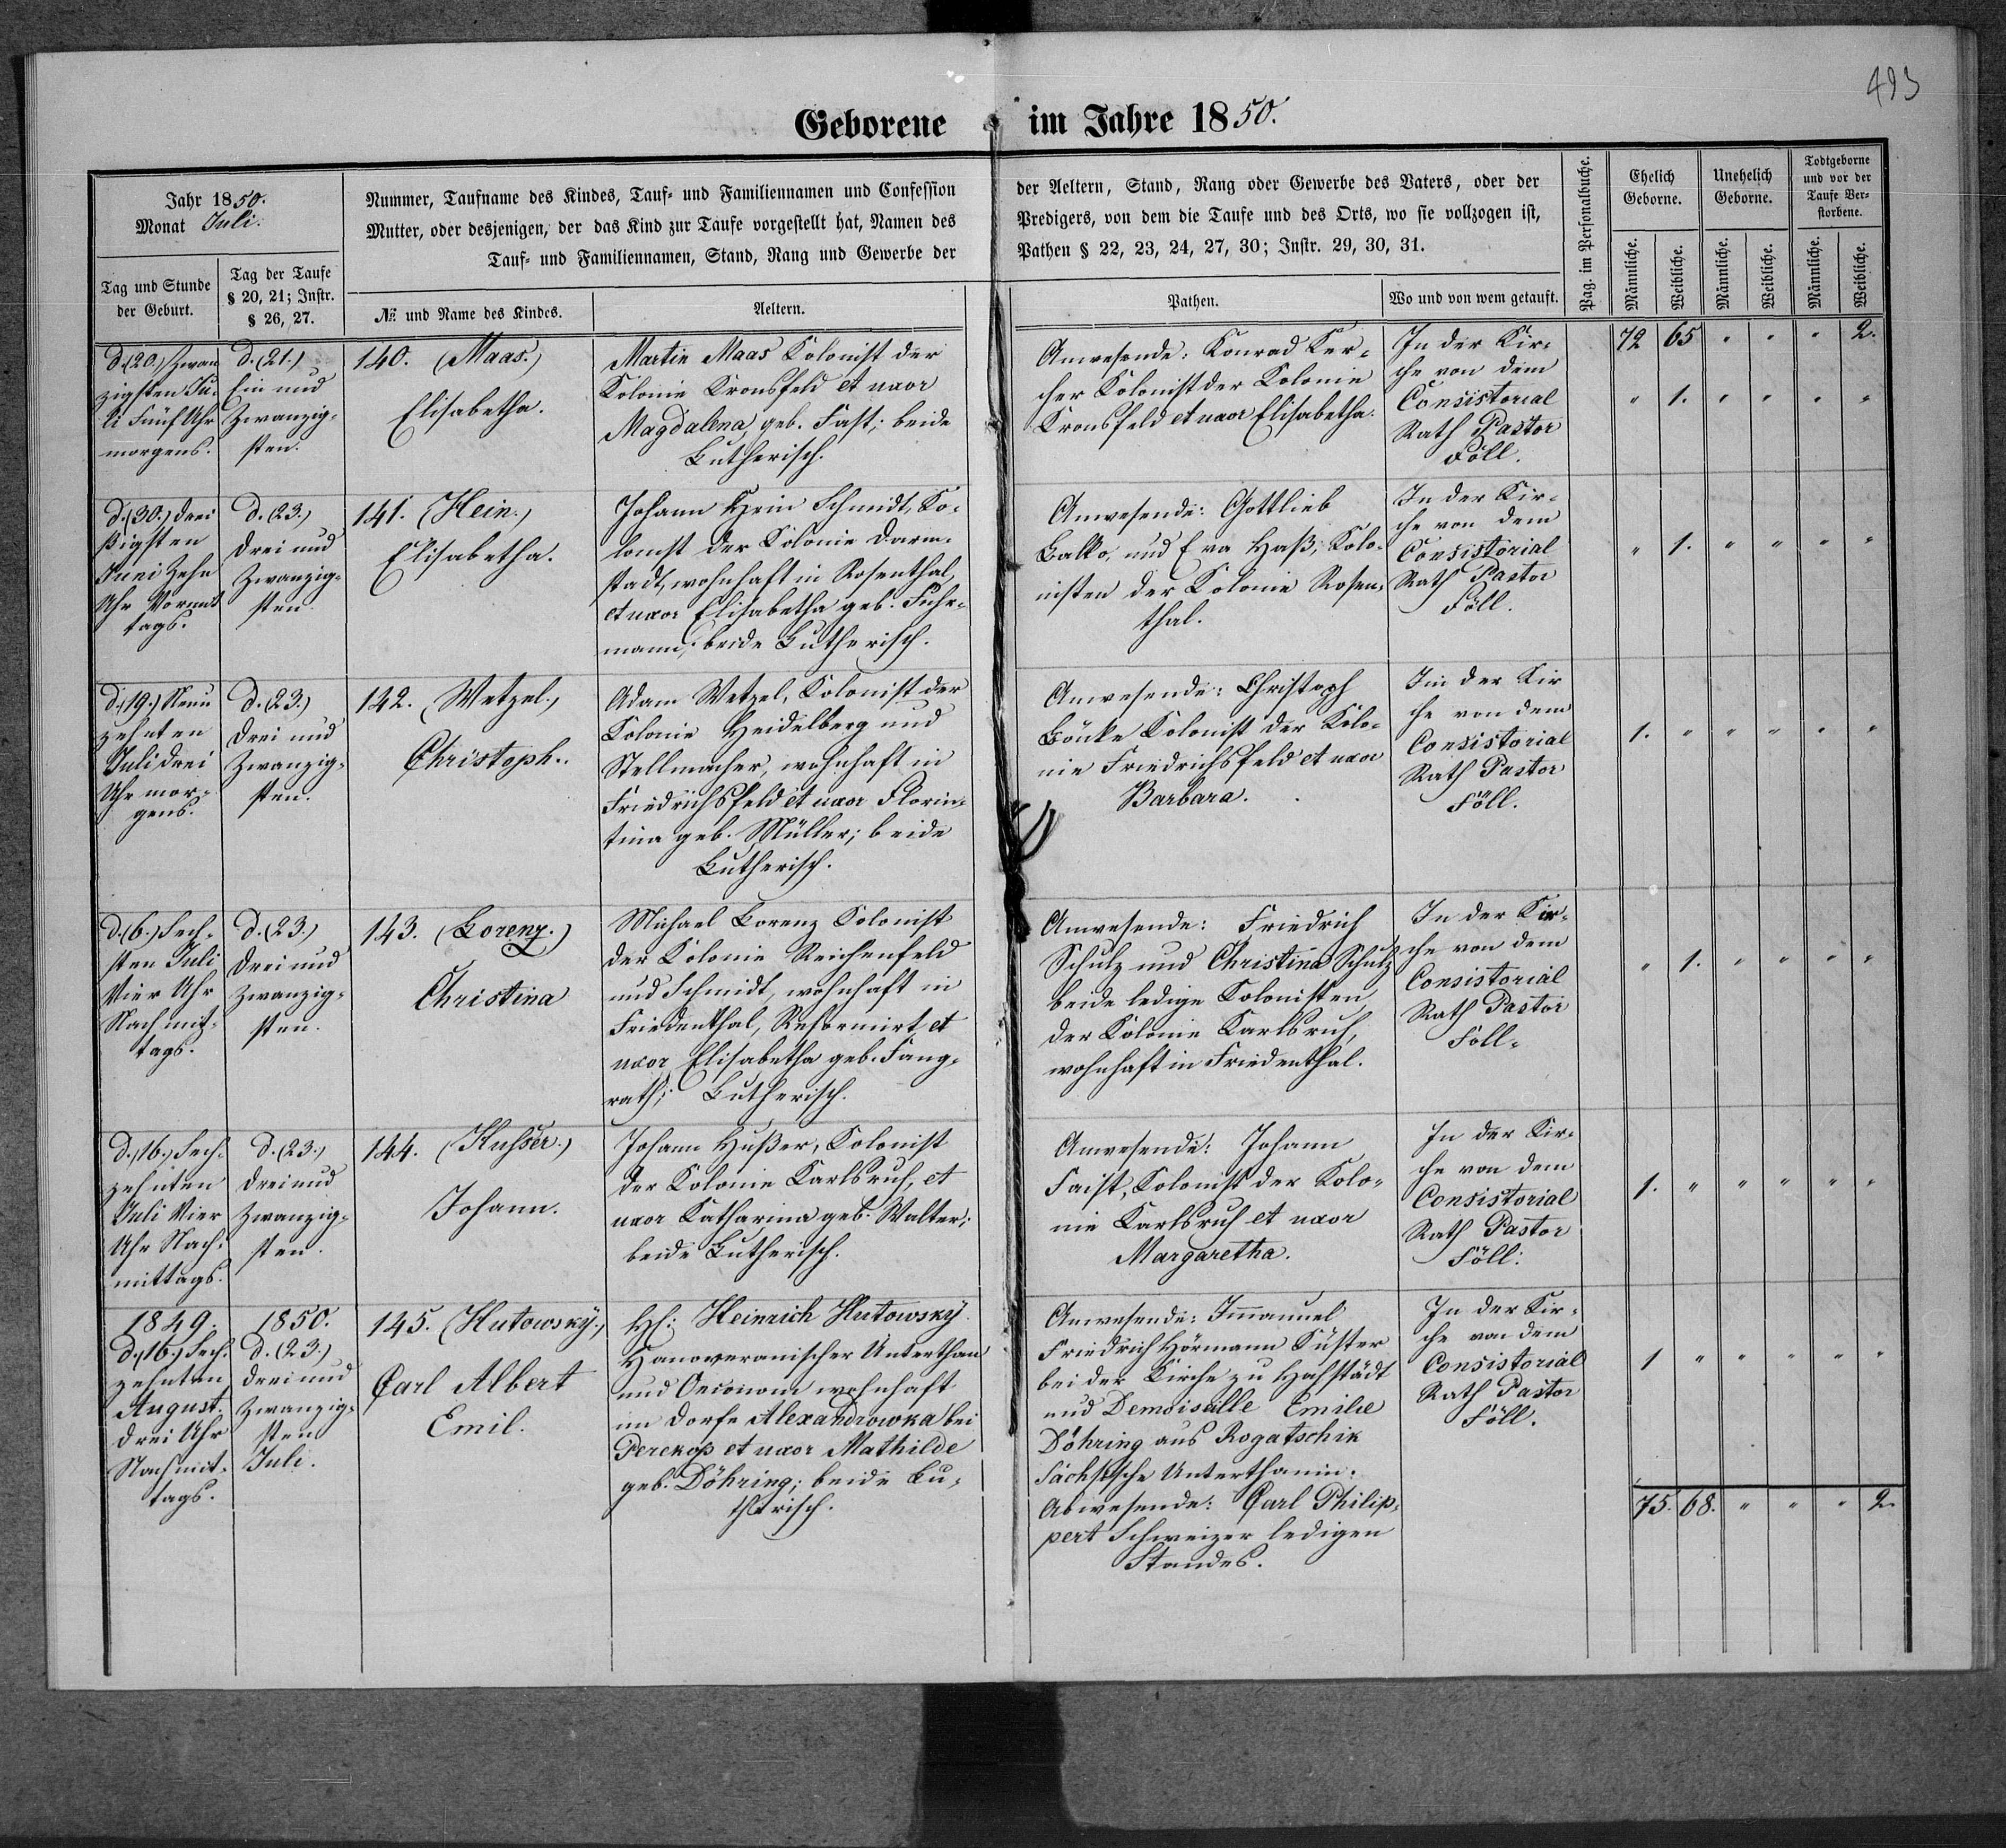 493
Geborene im Jahre 1850.
Jahr 1850.
Monat Juli.
Tag und Stunde
der Geburt.
Tag der Taufe
§ 20, 21; Instr.
§ 26, 27.
Nummer, Taufname des Kindes, Tauf- und Familiennamen und Confession
Mutter, oder desjenigen, der das Kind zur Taufe vorgestellt hat, Namen des
Tauf- und Familiennamen, Stand, Rang und Gewerbe der
№ und Name des Kindes.
Aeltern.
der Aeltern, Stand, Rang oder Gewerbe des Vaters, oder der
Predigers, von dem die Taufe und des Orts, wo sie vollzogen ist,
Pathen § 22, 23, 24, 27, 30; Instr. 29, 30, 31.
Pathen.
Wo und von wem getauft.
Pag. im Personalbuche.
Ehelich
Geborne.
Unehelich
Geborne.
Todtgeborne
und vor der
Taufe Ver-
storbene.
Männliche.
Weibliche.
Männliche.
Weibliche.
Männliche.
Weibliche.
72 65 " " " 2.
d. (20.) Zwan
zigsten Ju-
li Fünf Uhr
morgens.
d. (21.)
Ein und
Zwanzig-
sten.
140. (Maas.)
Elisabetha.
Martin Maas Kolonist der
Kolonie Kronsfeld et uxor
Magdalena, geb. Fast; beide
Lutherisch.
Anwesende: Konrad Ker-
cher Kolonist der Kolonie
Kronsfeld et uxor Elisabetha.
In der Kir-
che von dem
Consistorial
Rath Pastor
Föll.
" 1. " " " "
d. (30.) Drei
ßigsten
Juni Zehn
Uhr Vormit
tags.
d. (23.)
Drei und
Zwanzig-
sten.
141. (Hein.)
Elisabetha.
Johann Hein Schmidt, Ko-
lonist der Kolonie Darm-
stadt, wohnhaft in Rosenthal,
et uxor Elisabetha geb. Fuhr-
mann; beide Lutherisch.
Anwesende: Gottlieb
Balko, und Eva Haß, Kolo-
nisten der Kolonie Rosen-
thal.
In der Kir-
che von dem
Consistorial
Rath Pastor
Föll.
" 1. " " " "
d. (19.) Neun
zehnten
Juli Drei
Uhr mor-
gens.
d. (23.)
Drei und
Zwanzig-
sten.
142. (Wetzel.)
Christoph.
Adam Wetzel, Kolonist der
Kolonie Heidelberg und
Stellmacher, wohnhaft in
Friedrichsfeld et uxor Floren-
tina geb. Müller; beide
Lutherisch.
Anwesende: Christoph
Kolonist der Kolo-
nie Friedrichsfeld et uxor
Barbara.
In der Kir
che von dem
Consistorial
Rath Pastor
Föll.
1. " " " " "
d. (6.) Sech-
sten Juli
Vier Uhr
Nachmit-
tags.
d. (23.)
Drei und
Zwanzig-
sten.
143. (Lorenz.)
Christina
Michael Lorenz Kolonist
der Kolonie Reichenfeld
und Schmidt, wohnhaft in
Friedenthal, Reformirt, et
uxor Elisabetha geb. Fang-
rath; Lutherisch.
Anwesende: Friedrich
Schulz und Christina Schulz
beide ledige Kolonisten
der Kolonie Karlsruh,
wohnhaft in Friedenthal.
In der Kir-
che von dem
Consistorial
Rath Pastor
Föll.
" 1. " " " "
d. (16.) Sech-
zehnten
Juli Vier
Uhr Nach-
mittags.
d. (23.)
Drei und
Zwanzig-
sten.
144. (Husser.)
Johann.
Johann Hußer, Kolonist
der Kolonie Karlsruh, et
uxor Katharina geb. Walter;
beide Lutherisch.
Anwesende: Johann
Faist, Kolonist der Kolo-
nie Karlsruh et uxor
Margaretha.
In der Kir-
che von dem
Consistorial
Rath Pastor
Föll.
1. " " " " "
1849.
d. (16.) Sech-
zehnten
August.
Drei Uhr
Nachmit-
tags.
1850.
d. (23.)
Drei und
Zwanzig-
sten
Juli.
145. (Hutowsky.)
Carl Albert
Emil.
Heinrich Hutowsky
Hanoveranischer Unterthan
und Oeconom wohnhaft
im Dorfe Alexandrowka bei
Perekop et uxor Mathilde
geb. Döhring; beide Lu-
therisch.
Anwesende: Immanuel
Friedrich Hörmann Küster
bei der Kirche zu Hochstädt
und Demoiselle Emilie
Döhring aus Rogatschik
Sächsische Unterthanin.
Abwesende: Carl Philip-
pert Schweizer ledigen
Standes.
In der Kir-
che von dem
Consistorial
Rath Pastor
Föll.
1 " " " " "
75. 68. " " " 2.